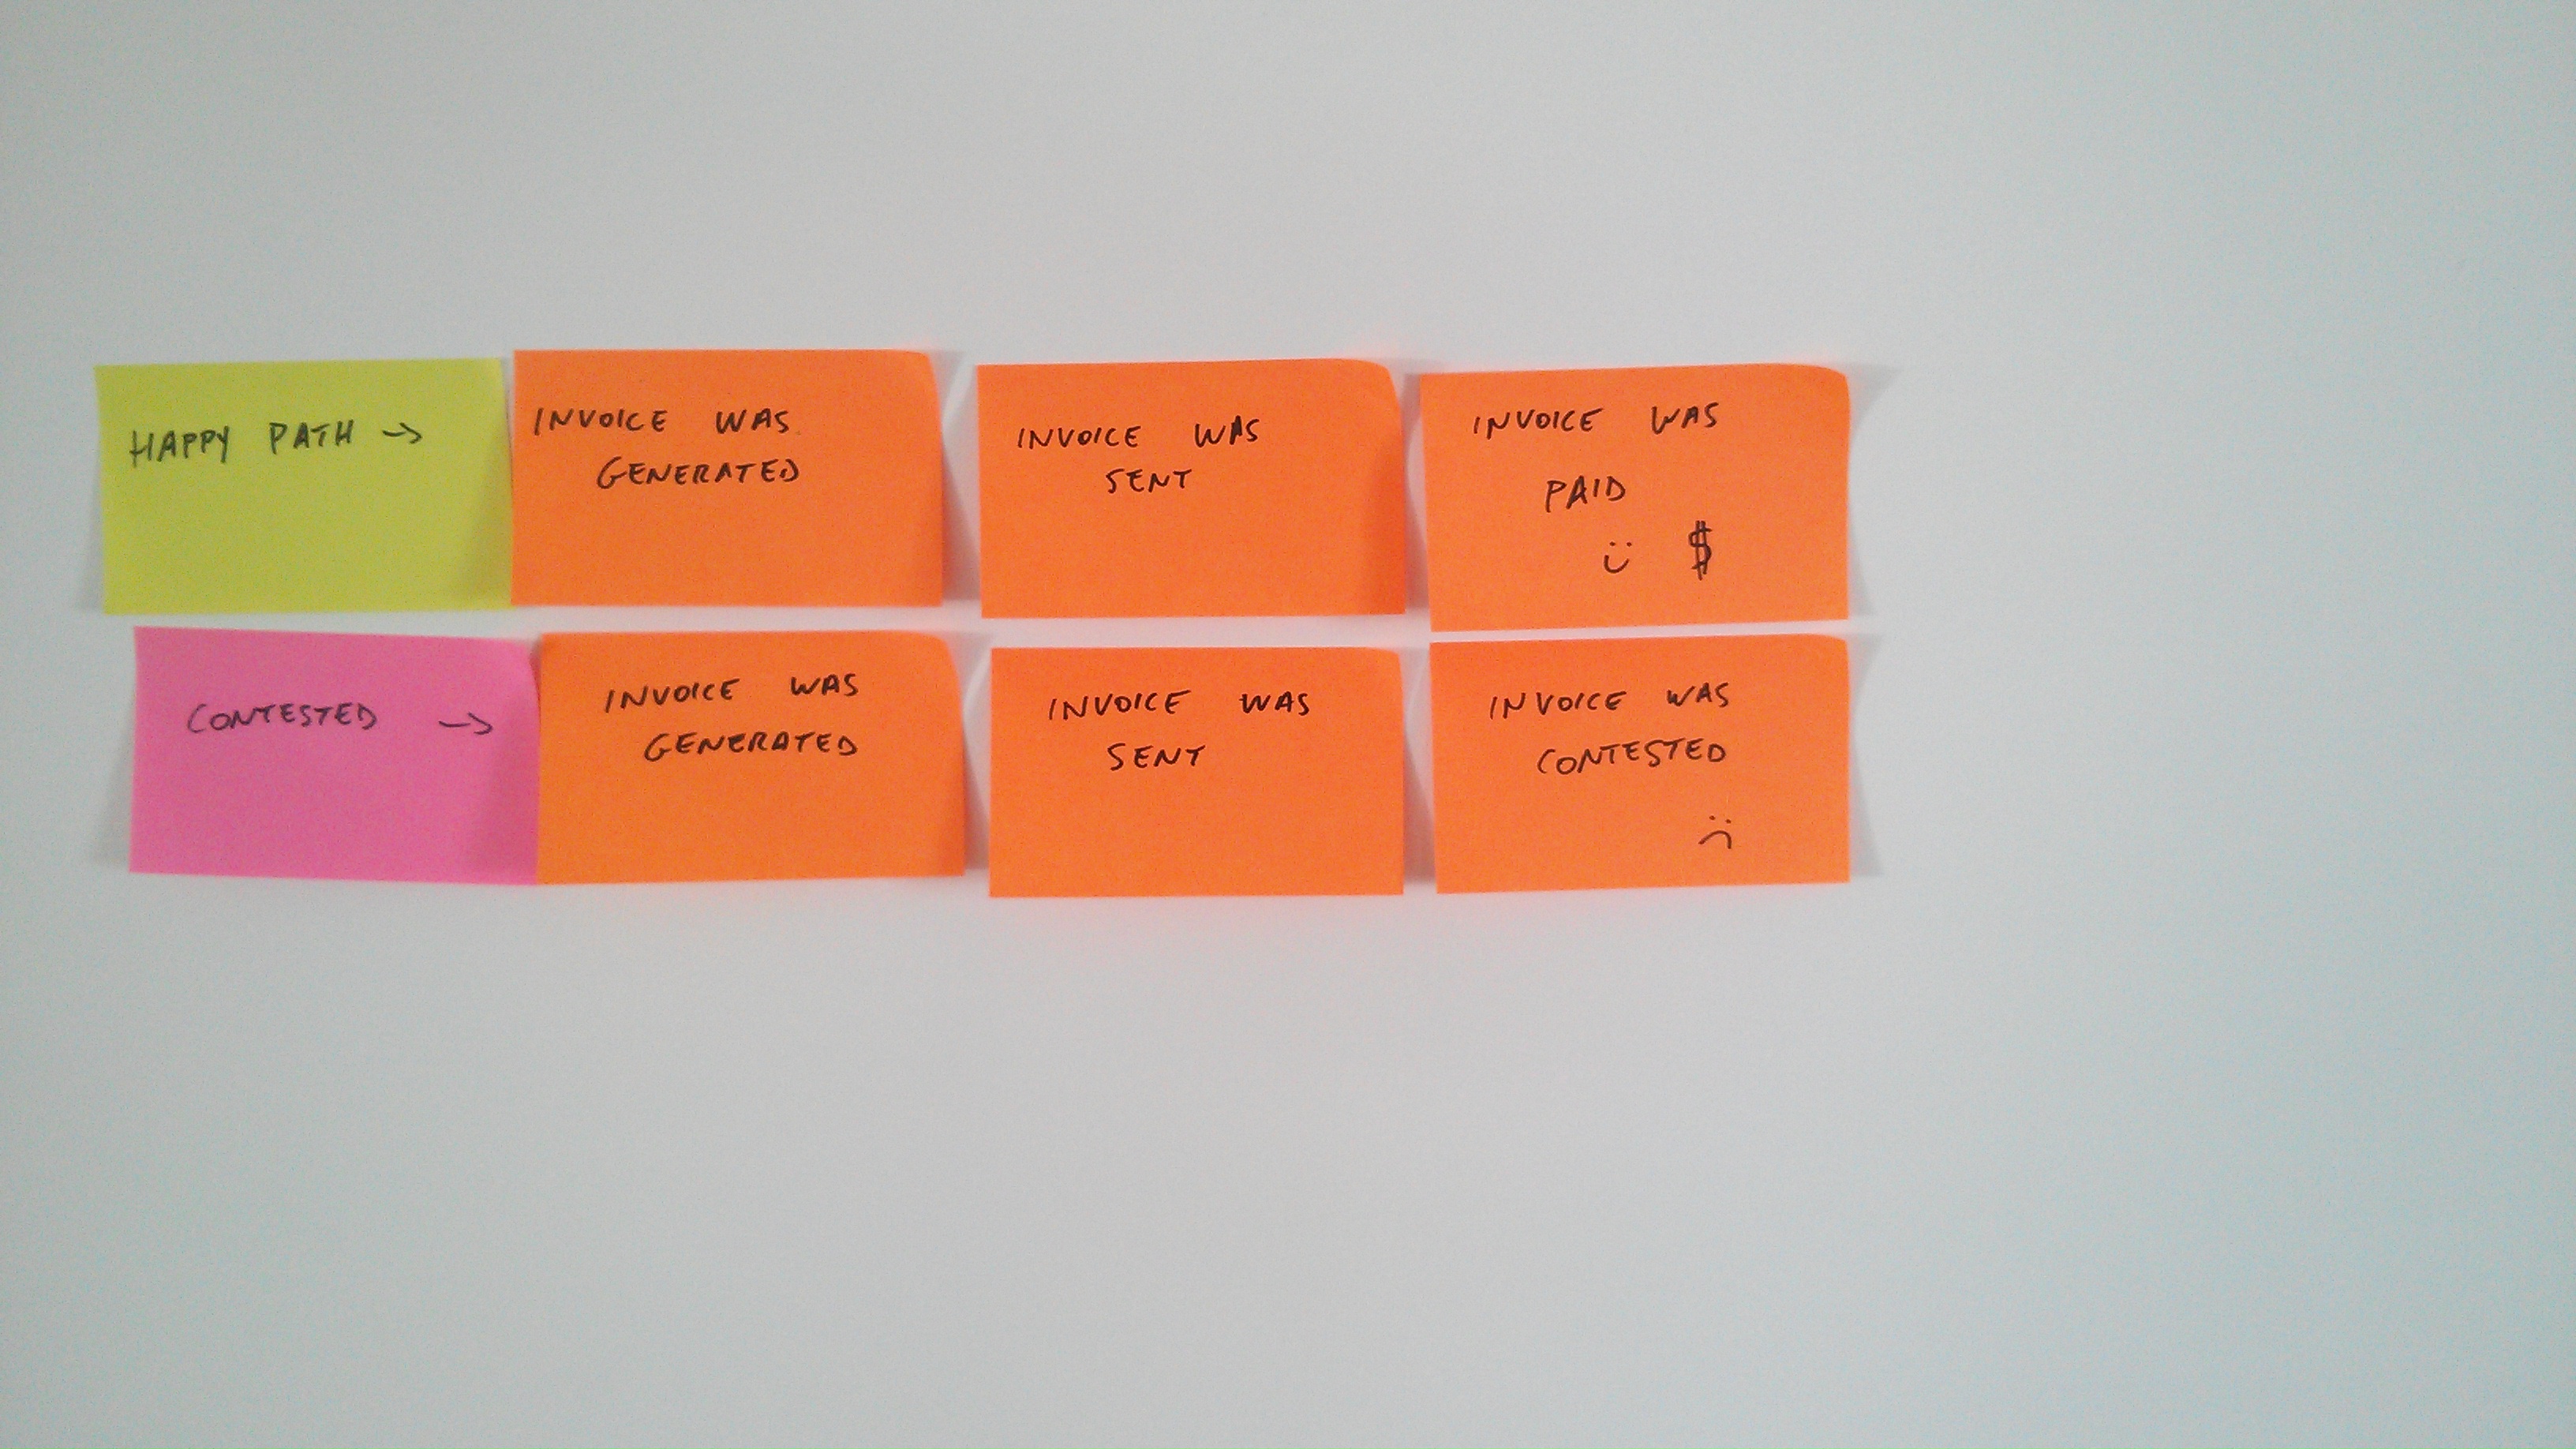 HAPPY PATH →
INVOICE WAS
GENERATED
INVOICE WAS
SENT
INVOICE WAS
PAID
$
CONTESTED →
INVOICE WAS
GENERATED
INVOICE WAS
SENT
INVOICE WAS
CONTESTED